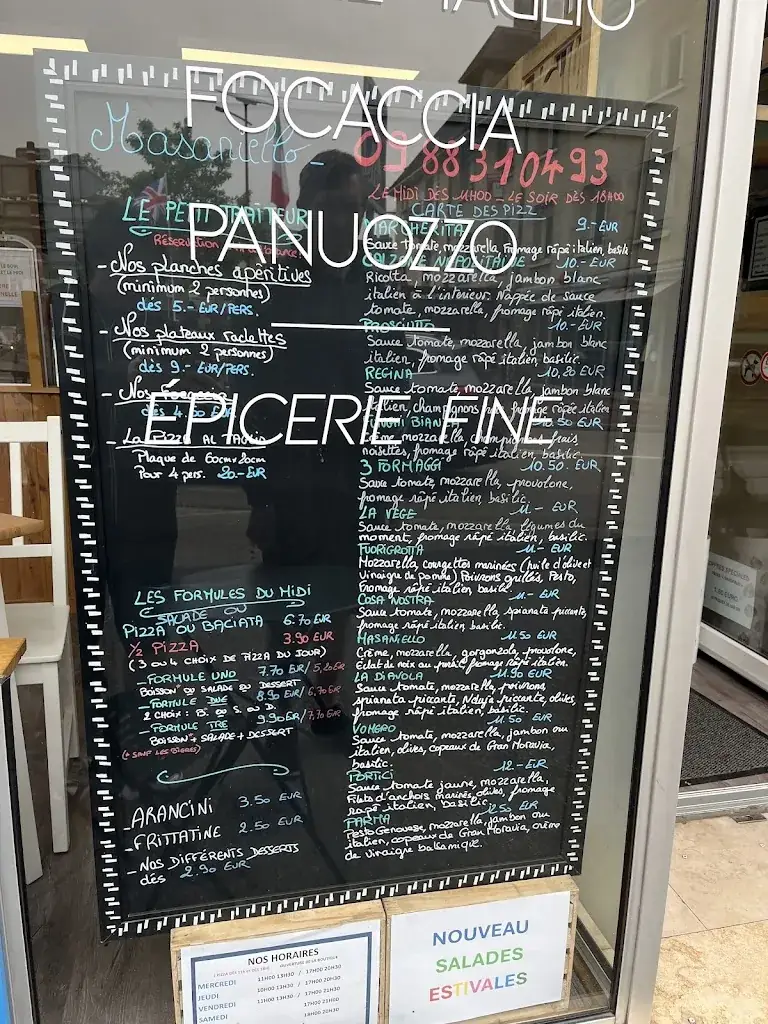 TAGLIO
FOCACCIA
PANUOZZO
ÉPICERIE FINE
Masaniello -
09 88 31 04 93
LE MIDI DÈS 11H00 - LE SOIR DÈS 18H00
LE PETIT TRAITEUR
RÉSERVATION
- Nos planches apéritives
(minimum 2 personnes)
dès 5.- EUR/PERS.
- Nos plateaux raclettes
(minimum 2 personnes)
dès 9.- EUR/PERS.
- Nos
dès 4.50 EUR
- La Pizza AL TAGLIO
Plaque de 60cmx20cm
Pour 4 pers. 20.- EUR
LES FORMULES DU MIDI
SALADE OU
PIZZA OU BACIATA 6.70 EUR
½ PIZZA 3.90 EUR
(3 OU 4 CHOIX DE PIZZA DU JOUR)
- FORMULE UNO 7.70 EUR/ 5,20 EUR
BOISSON* OU SALADE OU DESSERT
- FORMULE DUE 8.90 EUR/ 6,70 EUR
2 CHOIX : B. OU S. OU D.
- FORMULE TRE 9.90 EUR/ 7,70 EUR
BOISSON* + SALADE + DESSERT
(* SAUF LES BIÈRES)
- ARANCINI 3.50 EUR
- FRITTATINE 2.50 EUR
- NOS DIFFÉRENTS DESSERTS
dès 2.90 EUR
CARTE DES PIZZ
MARGHERITA 9.- EUR
Sauce tomate, mozzarella, fromage râpé italien, basilic
CALZONE NAPOLITAINE 10.- EUR
Ricotta, mozzarella, jambon blanc
italien à l'intérieur. Nappée de sauce
tomate, mozzarella, fromage râpé italien.
PROSCIUTTO 10.- EUR
Sauce tomate, mozzarella, jambon blanc
italien, fromage râpé italien, basilic.
REGINA 10,20 EUR
Sauce tomate, mozzarella, jambon blanc
italien, champignons frais, fromage râpée italien
FUNGHI BIANCA 10.50 EUR
Crème, mozzarella, champignons frais
noisettes, fromage râpé italien, basilic.
3 FORMAGGI 10.50. EUR
Sauce tomate, mozzarella, provolone,
fromage râpé italien, basilic.
LA VEGE 11.- EUR
Sauce tomate, mozzarella, légumes du
moment, fromage râpé italien, basilic.
FUORIGROTTA 11.- EUR
Mozzarella, courgettes marinées (huile d'olive et
Vinaigre de pomme) Poivrons grillés, Pesto,
fromage râpé italien, basilic.
COSA NOSTRA 11.- EUR
Sauce tomate, mozzarella, spianata piccante,
fromage râpé italien, basilic.
MASANIELLO 11.50 EUR
Crème, mozzarella, gorgonzola, provolone,
Éclat de noix au fromage râpé italien.
LA DIAVOLA 11.90 EUR
Sauce tomate, mozzarella, poivrons,
spianata piccante, Nduja piccante, olives,
fromage râpé italien, basilic.
VOMERO 11.50 EUR
Sauce tomate, mozzarella, jambon cru
italien, olives, copeaux de Gran Moravia,
basilic.
PORTICI 12.- EUR
Sauce tomate jaune, mozzarella,
Filets d'anchois marinés, olives, fromage
râpé italien, basilic.
PARMA 12.50 EUR
Pesto Genovese, mozzarella, jambon cru
italien, copeaux de Gran Moravia, crème
de vinaigre balsamique.
NOS HORAIRES
MERCREDI 11H00 13H30 / 17H00 20H30
JEUDI 10H00 13H30 / 17H00 20H30
VENDREDI 11H00 13H30 / 17H00 21H00
SAMEDI 18H00 20H30
NOUVEAU
SALADES
ESTIVALES